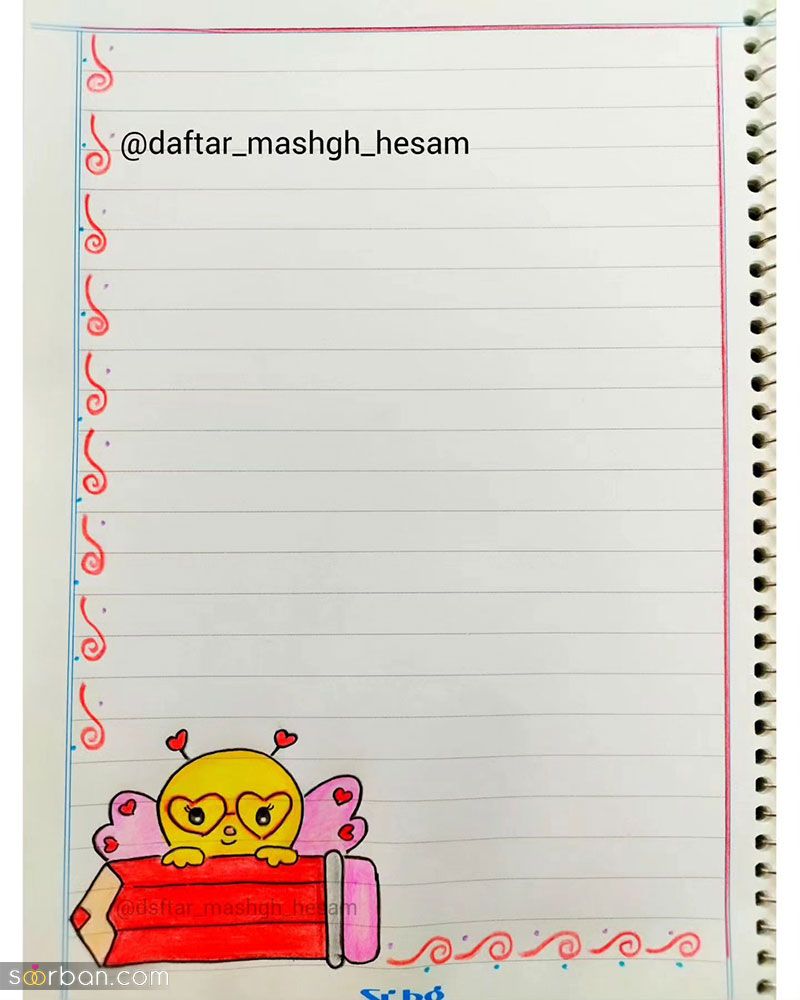 @daftar_mashgh_hesam
@dsftar_mashgh_hesam
soorban.com